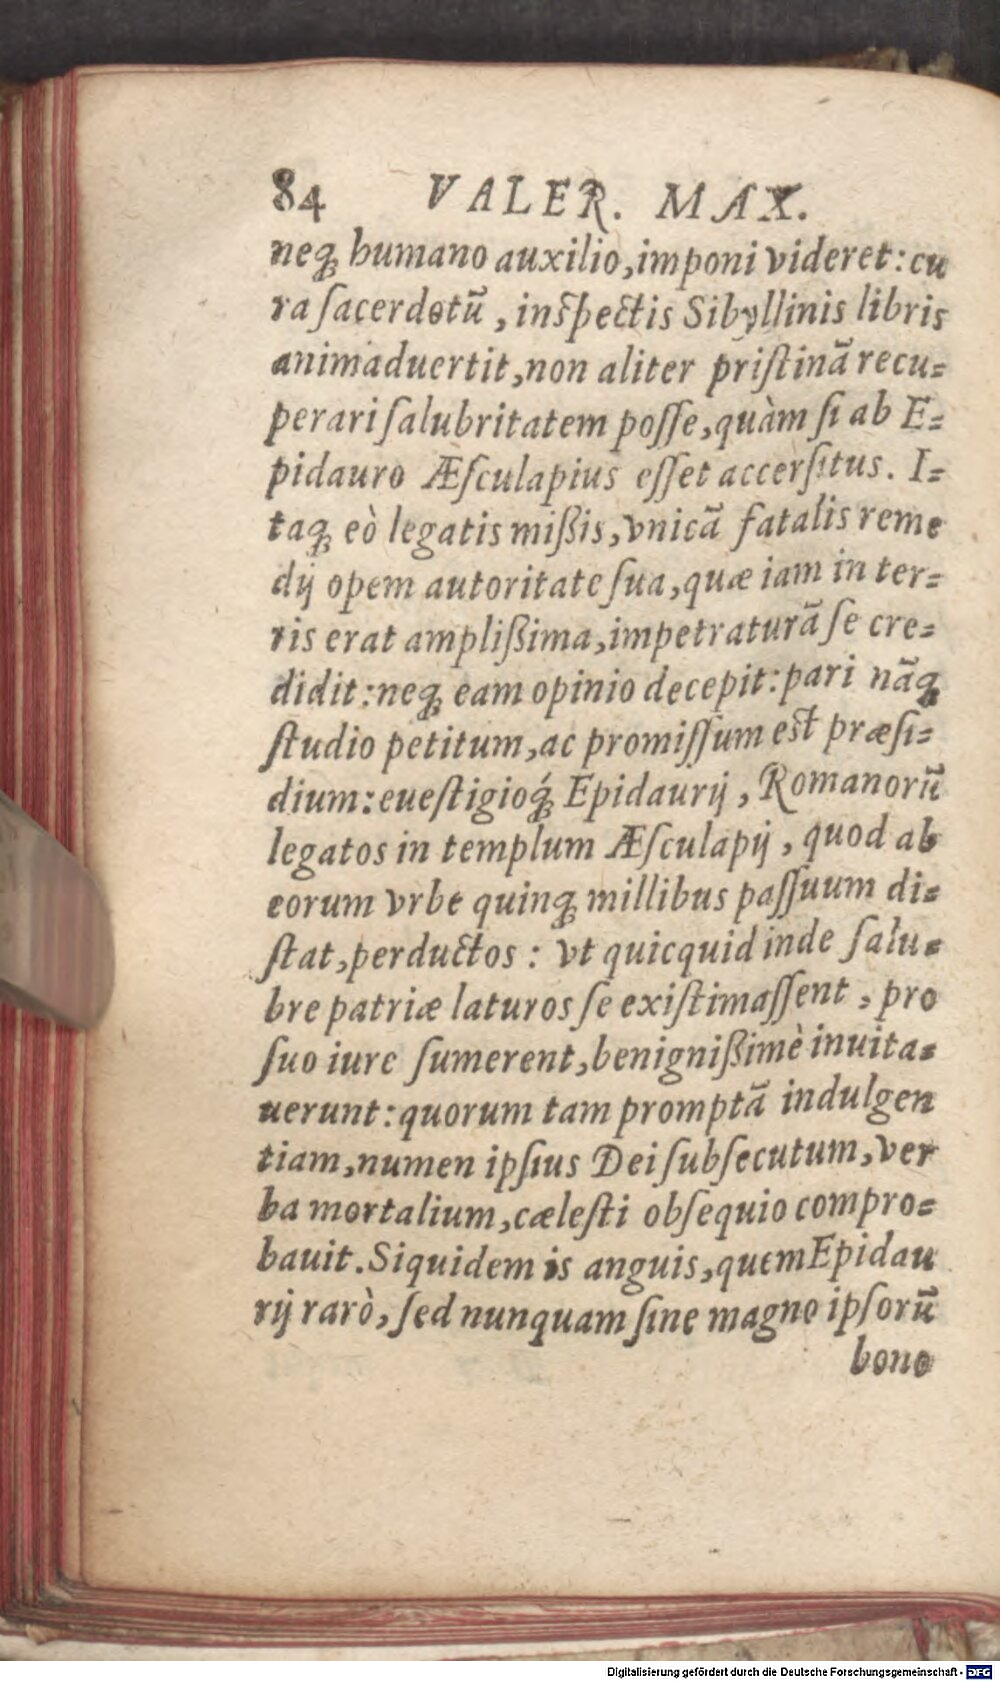 84 VALER. MAX.
neq́; humano auxilio,imponi videret:cu
ra ſacerdotũ , inſpectis Sibyllinis libris
animaduertit,non aliter priſtinã recu-
perari ſalubritatem poſſe,quàm ſi ab E-
pidauro Æſculapius eſſet accerſitus. I-
taq; eò legatis mißis,vnicã fatalis reme
dij opem autoritate ſua,quæ iam in ter-
ris erat amplißima,impetraturã ſe cre-
didit:neq; eam opinio decepit:pari nãq;
ſtudio petitum,ac promiſſum est præſi-
dium:eueſtigioq́; Epidaurij , Romanorũ
legatos in templum Æſculapij , quod ab
eorum vrbe quinq; millibus paſſuum di-
ſtat,perductos : vt quicquid inde ſalu-
bre patriæ laturos ſe exiſtimaſſent , pro
ſuo iure ſumerent,benignißimè inuita-
uerunt:quorum tam promptã indulgen
tiam,numen ipſius Dei ſubſecutum,ver
ba mortalium,cæleſti obſequio compro-
bauit.Siquidem is anguis,quem Epidau
rij rarò,ſed nunquam ſine magno ipſorũ
bono
Digitalisierung gefördert durch die Deutsche Forschungsgemeinschaft - DFG